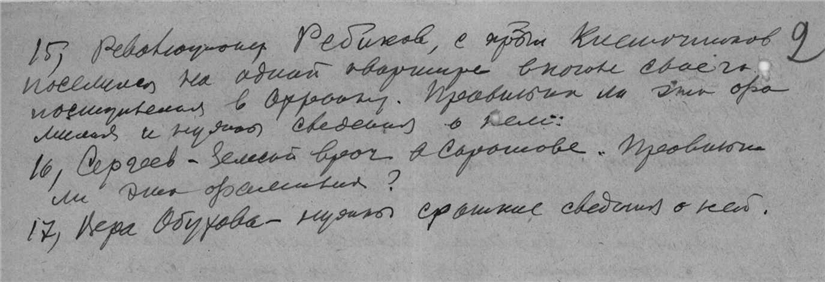 2
15) Революционер Ребиков, с кот Клеточников
поселился на одной квартире вскоре своего
поступления в Охранку. Правильна ли эта фа
милия и нужны сведения о нем:
16) Сергеев - Земский врач в Саратове. Правильна
ли эта фамилия?
17) Вера Обухова - нужны краткие сведения о ней.